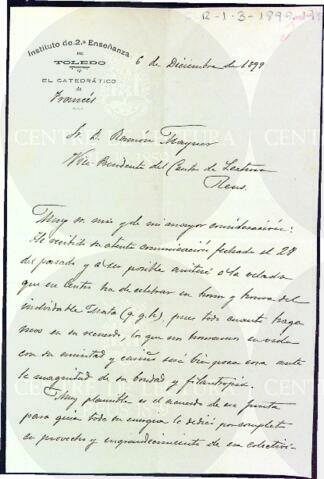 12-1-3-1899
Instituto de 2.ª Enseñanza
DE
TOLEDO
EL CATEDRÁTICO
de
Francés
6 de Diciembre de 1899
Sr. D. Ramon Mayner
Vice-Presidente del Centro de Lectura
Reus.
Muy Sr. mio y de mi mayor consideración:
He recibido su atenta comunicación fechada el 28
del pasado y á ser posible asistiré á la velada
que ese Centro ha de celebrar en honor y honra del
inolvidable (q. g. h.), pues todo cuanto haga
mos en su recuerdo, los que nos honramos
con su amistad y cariño será bien poca cosa ante
la magnitud de su bondad y filantropía.
Muy plausible es el acuerdo de esa Junta
para quien toda su energia la dedicó por completo
en provecho y engrandecimiento de esa colectivi-
CENTRE DE LECTURA